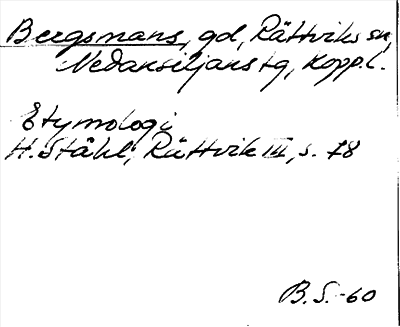 Bergsmans, gd, Rättviks sn,
Nedansiljans tg, Kopp.l.
Etymologi
H. Ståhl, Rättvik III, s. 78
B.S.-60